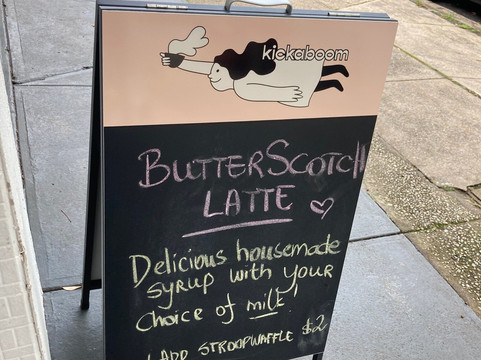 kickaboom
BUTTERSCOTCH
LATTE
Delicious housemade
syrup with your
choice of milk!
ADD STROOPWAFFLE $2